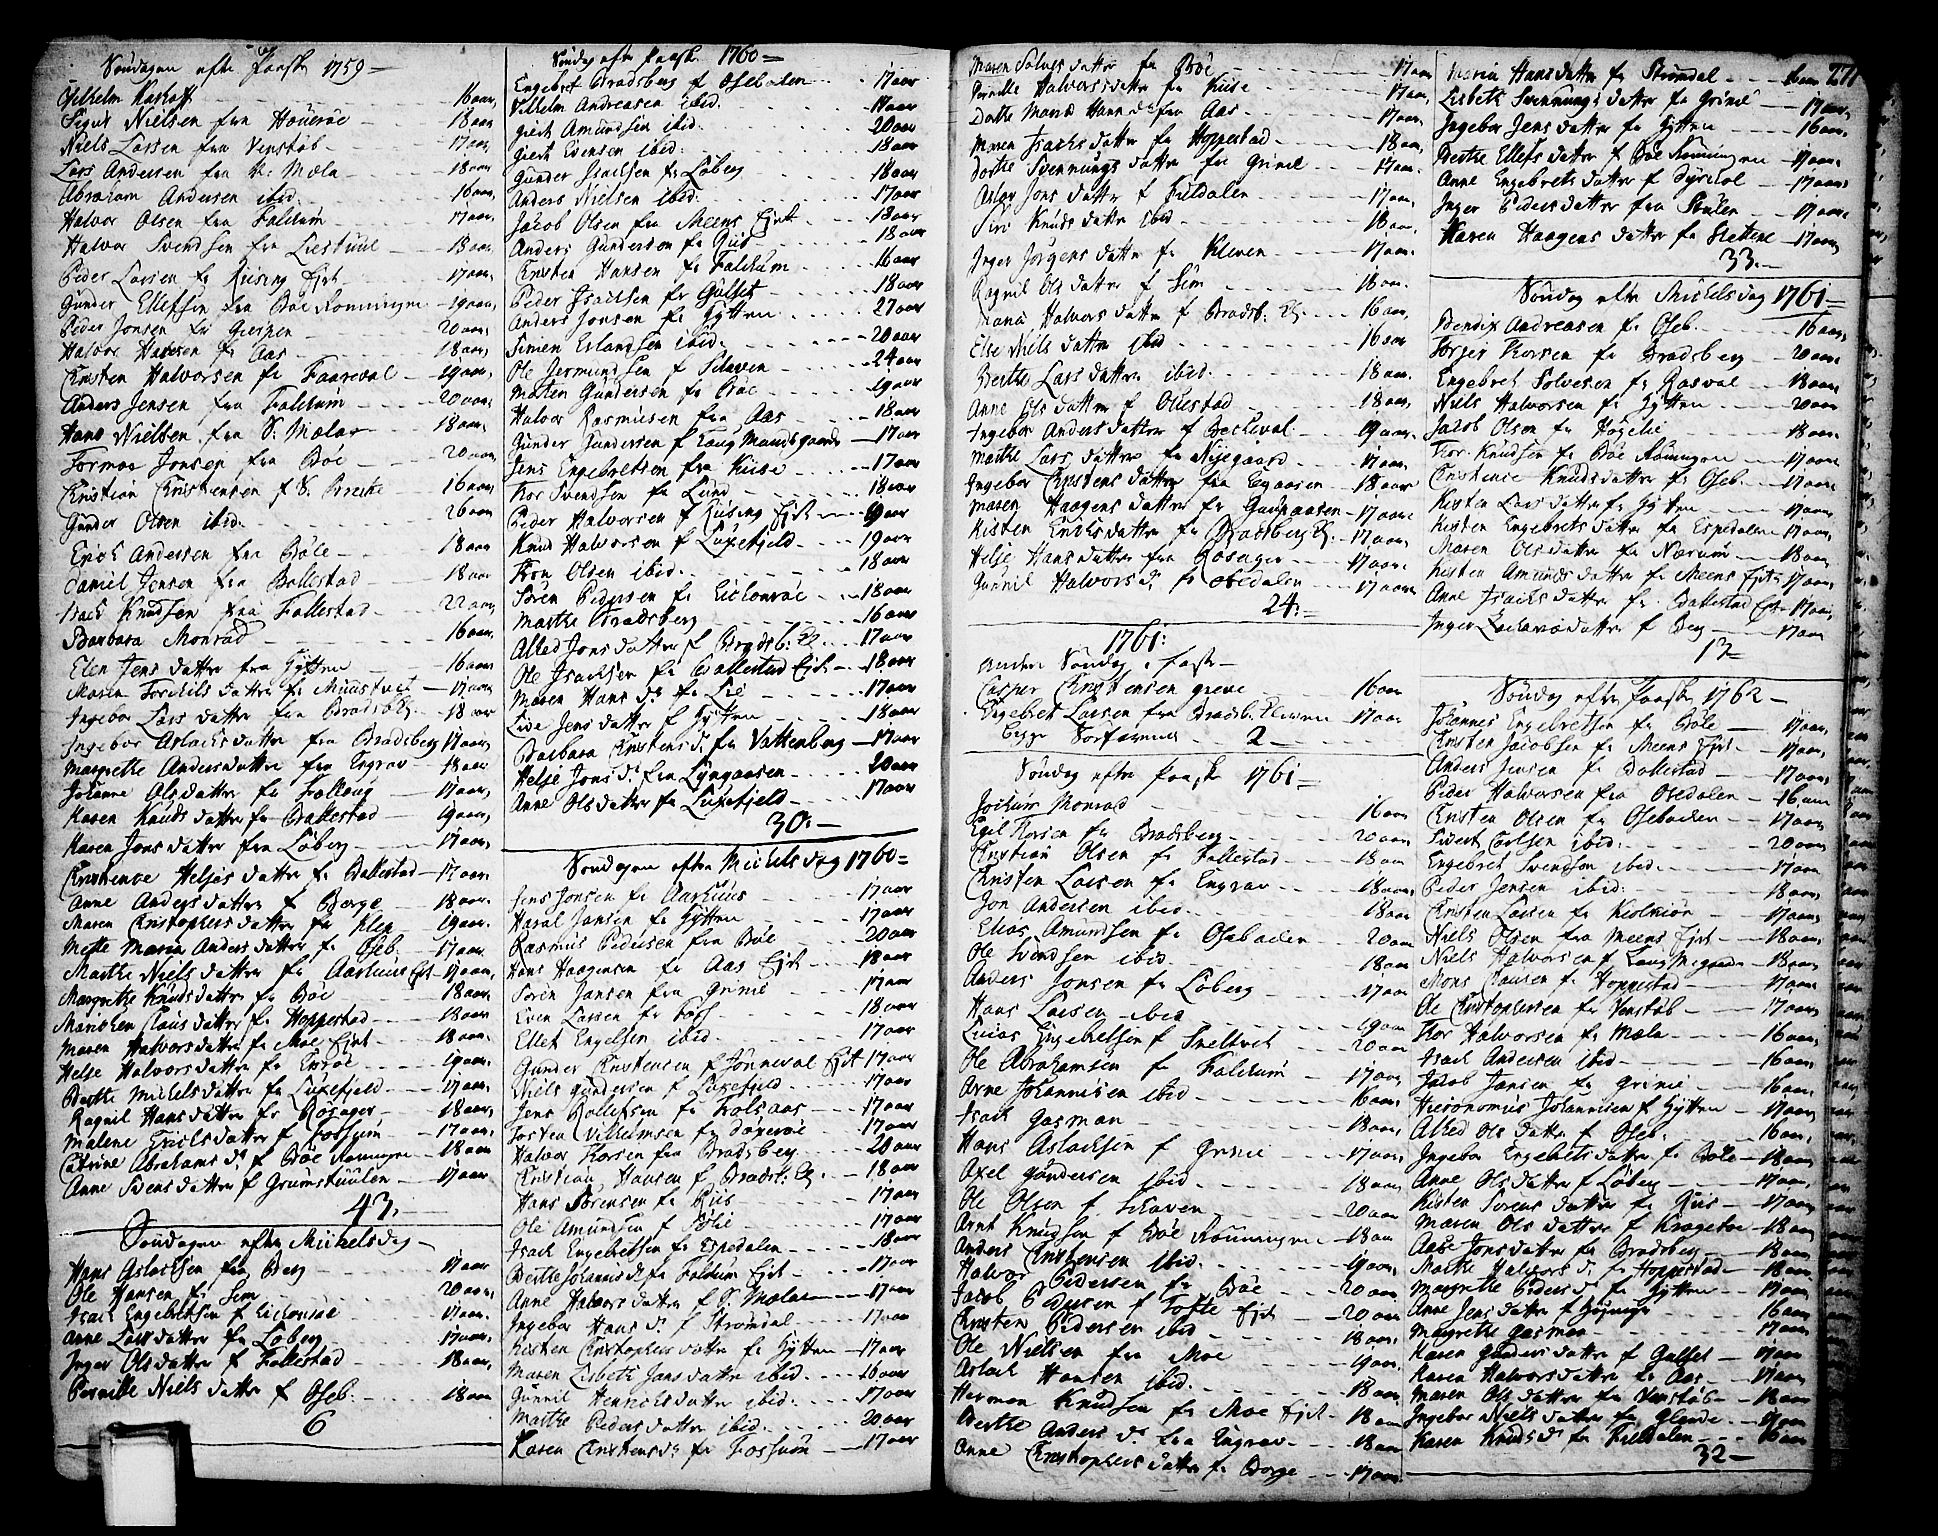 Søndagen efter Paaske 1759
Vilhelm 16 aar
Nielsen fra 18 aar
Niels Larsen fra Venstøb 17 aar
Lars Andersen fra N: Mæla 18 aar
Abraham Andersen ibid. 16 aar
Halvor Olsen fra Faldum 17 aar
Halvor Svendsen fra 18 aar
Peder Larsen fr Riising Ejet 17 aar
Gunder Ellefsen fra Bøe Rønningen 19 aar
Peder Jonsen fr Gierpen 20 aar
Halvor Hansen fr Aas 18 aar
Christen Halvorsen fr 19 aar
Anders Jensen fra Faldum 20 aar
Hans Nielsen fra S: Mæla 18 aar
Tormoe Jonsen fra Bøe 20 aar
Christian Christensen f S: 16 aar
Gunder Olsen ibid. 26 aar
Erich Andersen fra Bøle 18 aar
Daniel Jensen fra Ballestad 18 aar
Isach Knudsen fra Fallestad 22 aar
Barbara Monrad 16 aar
Elen Jens datter fra Gytten 16 aar
Maren Torchils datter fr 17 aar
Ingebor Lars datter fra Bradsb: 18 aar
Ingebor Aslachs datter fra Bradsberg 17 aar
Margrethe Anders datter fra Engrav 18 aar
Johanne Ols datter fr 17 aar
Karen Knuds datter fr Ballestad 19 aar
Karen Jons datter fra Løberg 17 aar
Helges datter fr Ballestad 17 aar
Anne Anders datter f Borge 18 aar
Maren Christophers datter fr Klep 19 aar
Mette Maria Anders datter fr Oseb. 17 aar
Marthe Niels datter fr Aarhuus Ejet 17 aar
Margrethe Knuds datter fr Bøe 18 aar
Marichen Claus datter fr Hoppestad 18 aar
Maren Halvors datter fr Moe Ejet 18 aar
Helje Halvors datter fr 19 aar
Berthe Michels datter fr Luxefjeld 17 aar
Ragnil Hans datter fr Rosager 18 aar
Malene Erichs datter f Fossum 17 aar
Catrine Abrahams dr f Bøe Rønningen 18 aar
Anne Svens datter f Grumstuulen 17 aar
43.
Søndagen efter Michelsdag
Hans Aslachsen fra Berg 17 aar
Ole Hansen fr Sem 20 aar
Isach Engebretsen f 17 aar
Anne Lars datter fr Løberg 17 aar
Inger Ols datter f Fallestad 18 aar
Pernille Niels datter f Oseb. 18 aar
6
Søndag efter Paaske 1760
Engebret Bradsberg f Osebakken 17 aar
Vilhelm Andreasen ibid. 17 aar
Giert Amundsen ibid. 20 aar
Giert Evensen ibid. 18 aar
Gunder Isachsen fr Løberg 18 aar
Anders Nielsen ibid. 17 aar
Jacob Olsen fra Meens Ejet 18 aar
Anders Gundersen fr 18 aar
Christen Hansen fr Faldum 16 aar
Peder Isachsen fr Gulset 18 aar
Anders Jonsen fr Gytten 27 aar
Simen Erlandsen ibid. 20 aar
Ole Jermundsen f Skaven 24 aar
Morten Gundersen fr Bøe 19 aar
Halvor Rasmusen fra Aas 18 aar
Gunder Gundersen f Laugmandsgaarden 17 aar
Jens Engebretsen fra Kiise 17 aar
Thor Svendsen fr Lund 18 aar
Peder Halvorsen f Riising Ejet 19 aar
Knud Halvorsen f Luxefjeld 19 aar
Olsen ibid. 18 aar
Søren Pedersen fr 18 aar
Marthe Bradsberg 16 aar
Alhed Jons datter f Bradsb. 17 aar
Ole Isachsen fr Ballestad Ejet 18 aar
Maren Hans dr fr Lie 17 aar
Jens datter f Gytten 18 aar
Barbara Christens dr fr Vattenberg 17 aar
Helje Jons dr fra Lyngaasen 20 aar
Anne Ols datter fr Luxefjeld 17 aar
30.
Søndagen efter Michelsdag 1760
Jens Jonsen fr Aarhuus 17 aar
Jansen fr Gytten 17 aar
Rasmus Pedersen fra Bøe 20 aar
Hans Haagensen fr Aas Ejet 18 aar
Søren Jansen fra Grinie 17 aar
Even Larsen fr Foss 18 aar
Ellef Engelsen ibid. 17 aar
Gunder Christensen f Ejet 17 aar
Niels Gundersen f Luxefjeld 17 aar
Jens Rollefsen fr 17 aar
Josten Vilhelmsen fr 17 aar
Halvor Thorsen fra Bradsberg 20 aar
Christian Hansen f Bradsb: 18 aar
Hans Sørensen fr Riis 17 aar
Ole Amundsen f 17 aar
Isach Engebretsen fr Espedalen 18 aar
Berthe Johannis dr fr Faldum Ejet 17 aar
Anne Halvors datter f S. Mælen 17 aar
Ingebor Hans dr f Strømdal 17 aar
Kirsten Christophers datter fr Gytten 17 aar
Maren Lisbeth Jons datter ibid. 16 aar
Gunnil Henrichs datter ibid. 17 aar
Marthe Peders datter ibid. 20 aar
Karen Christens dr fr Fossum 17 aar
Maren Solves datter fr Bøe 17 aar
Pernille Halvors datter fr Kiise 17 aar
Dorthe Maria Hans dr fra Aas 17 aar
Maren Isachs datter fr Hoppestad 18 aar
Dorthe Svennungs datter fr Grinie 17 aar
Jons datter f Fieldalen 17 aar
Siri Knuds datter ibid. 18 aar
Inger Jørgens datter fr Kleven 17 aar
Ragnil Ols datter fr Sem 18 aar
Maria Halvors datter f Bradsb. 16 aar
Else Niels datter ibid. 16 aar
Berthe Lars datter ibid. 18 aar
Anne Ols datter f 18 aar
Ingebor Anders datter f 19 aar
Marthe Lars datter fr Nijegaard 17 aar
Ingebor Christens datter fra 18 aar
Maren Haagens datter fr 17 aar
Kirsten Erichs datter fr Bradsberg 17 aar
Helje Hans datter fra Rosager 17 aar
Gunnil Halvors dr fr 17 aar
24.
1761.
Anden Søndag i Faste
Casper Christensen 16 aar
Engebret Larsen fra Bradsb. Kleven 17 aar
Begge 2
Søndag efter Paaske 1761
Jochum Monrad 16 aar
Egil Thorsen fr Bradsberg 20 aar
Christian Olsen fr Fallestad 18 aar
Christen Larsen fr Engrav 18 aar
Jon Andersen ibid. 18 aar
Elias Amundsen fr Osebacken 20 aar
Ole Svendsen ibid. 18 aar
Anders Jonsen fr Løberg 17 aar
Hans Larsen ibid 19 aar
Engebretsen f 20 aar
Ole Abrahamsen fr Faldum 17 aar
Arne Johannisen ibid. 16 aar
Isach Gasman 18 aar
Hans Aslachsen f Grinie 17 aar
Axel Gundersen ibid. 18 aar
Ole Olsen f Skaven 20 aar
Arnt Knudsen f Bøe Rønningen 18 aar
Anders Christensen ibid. 19 aar
Halvor Pedersen fr Bøe 20 aar
Jacob Pedersen f Tofte Ejet 20 aar
Christen Pedersen ibid 18 aar
Ole Nielsen fra Moe 19 aar
Aslach Hansen ibid. 18 aar
Herman Knudsen fr Moe Ejet 18 aar
Berthe Anders dr fra Engrav 18 aar
Anne Christophers datter fr Borge 17 aar
271
Maria Hans datter fr Strømdal 16 aar
Lisbeth Svennungs datter fr Grinie 17 aar
Ingebor Jens datter fr Gytten 16 aar
Berthe Ellefs datter f Bøe Rønningen 17 aar
Anne Engebrets datter f 17 aar
Inger Peders datter fra 17 aar
Karen Haagens datter fr 17 aar
33.
Søndag efter Michelsdag 1761
Bendix Andreasen fr Oseb. 16 aar
Jørgen Thorsen fr Bradsberg 20 aar
Engebret Solvesen fr 18 aar
Niels Halvorsen fr Gytten 20 aar
Jacob Olsen fr 18 aar
Thor Knudsen fr Bøe Rønningen 17 aar
Christence Knuds datter fr Oseb. 17 aar
Kirsten Lars datter fr Gytten 17 aar
Kirsten Engebrets datter fr Espedalen 17 aar
Maren Ols datter fr Nærum 18 aar
Kirsten Amunds datter fr Meens Ejet 17 aar
Anne Isachs datter fr Ballestad Ejet 17 aar
Inger Zacharia datter f Berg 17 aar
13
Søndag efter Paaske 1762
Johannes Engebretsen fr Bøle 17 aar
Christen Jacobsen fr Meens Ejet 17 aar
Anders Jensen fr Ballestad 17 aar
Peder Halvorsen fra 16 aar
Christen Olsen fr Osebacken 17 aar
Sivert Carlsen ibid. 20 aar
Engebret Svendsen ibid. 17 aar
Peder Jensen ibid. 18 aar
Christen Larsen fr 17 aar
Niels Olsen fra Meens Ejet 18 aar
Niels Halvorsen f 18 aar
Mons Clausen fr Hoppestad 17 aar
Ole Christophersen fr Venstøb 17 aar
Thor Halvorsen fr Mæla 16 aar
Isach Andersen ibid 16 aar
Jacob Jansen fr Grinie 16 aar
Hieronomus Johannisen fr Gytten 17 aar
Alhed Ols datter f Oseb. 16 aar
Ingebor Engebrets datter fr Bøle 18 aar
Anne Ols datter f Løberg 17 aar
Kirsten Sørens datter fr Riis 17 aar
Maren Ols datter f 18 aar
Aase Jons datter fr Bradsberg 18 aar
Marthe Halvors dr fr Hoppestad 18 aar
Margrethe Peders dr fr Gytten 17 aar
Anne Jens datter f 16 aar
Margrethe Gasman 17 aar
Karen Gunders datter f Gulset 17 aar
Karen Halvors datter fr Aas 17 aar
Maren Ols datter fra Venstøb 18 aar
Ingebor Niels datter fr 17 aar
Karen Knuds dr fr Fieldalen 16 aar
32